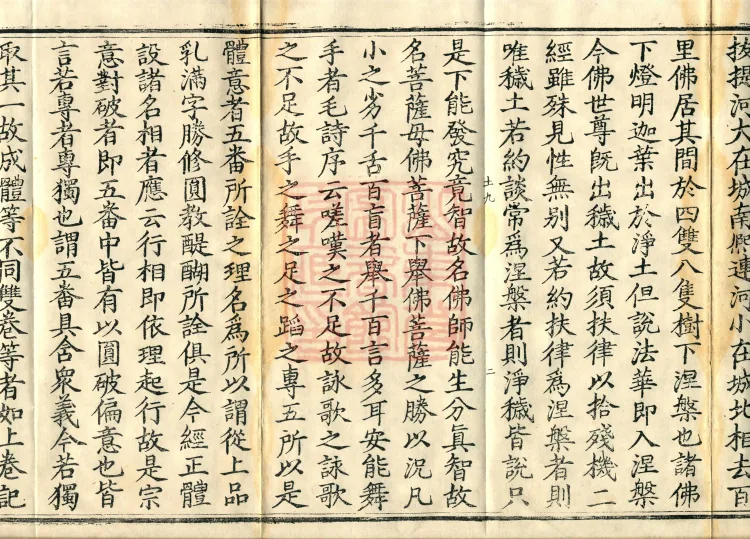 提河大在城南熈連河小在城北相去百
里佛居其間於四雙八隻樹下涅槃也諸佛
下燈明迦葉出於淨土但說法華即入涅槃
今佛世尊旣出穢土故須扶律以拾殘機二
經雖殊見性無別又若約扶律爲涅槃者則
唯穢土若約談常爲涅槃者則淨穢皆說只
土九
二
是下能發究竟智故名佛師能生分眞智故
名菩薩母佛菩薩下舉佛菩薩之勝以況凡
小之劣千舌百盲者舉千百言多耳安能舞
手者毛詩序云嗟嘆之不足故詠歌之詠歌
之不足故手之舞之足之蹈之專五所以是
體意者五番所詮之理名爲所以謂從上品
乳滿字勝修圓教醍醐所詮俱是今經正體
設諸名相者應云行相即依理起行故是宗
意對破者即五番中皆有以圓破偏意也皆
言若專者專獨也謂五番具含衆義今若獨
取其一故成體等不同雙卷等者如上卷記